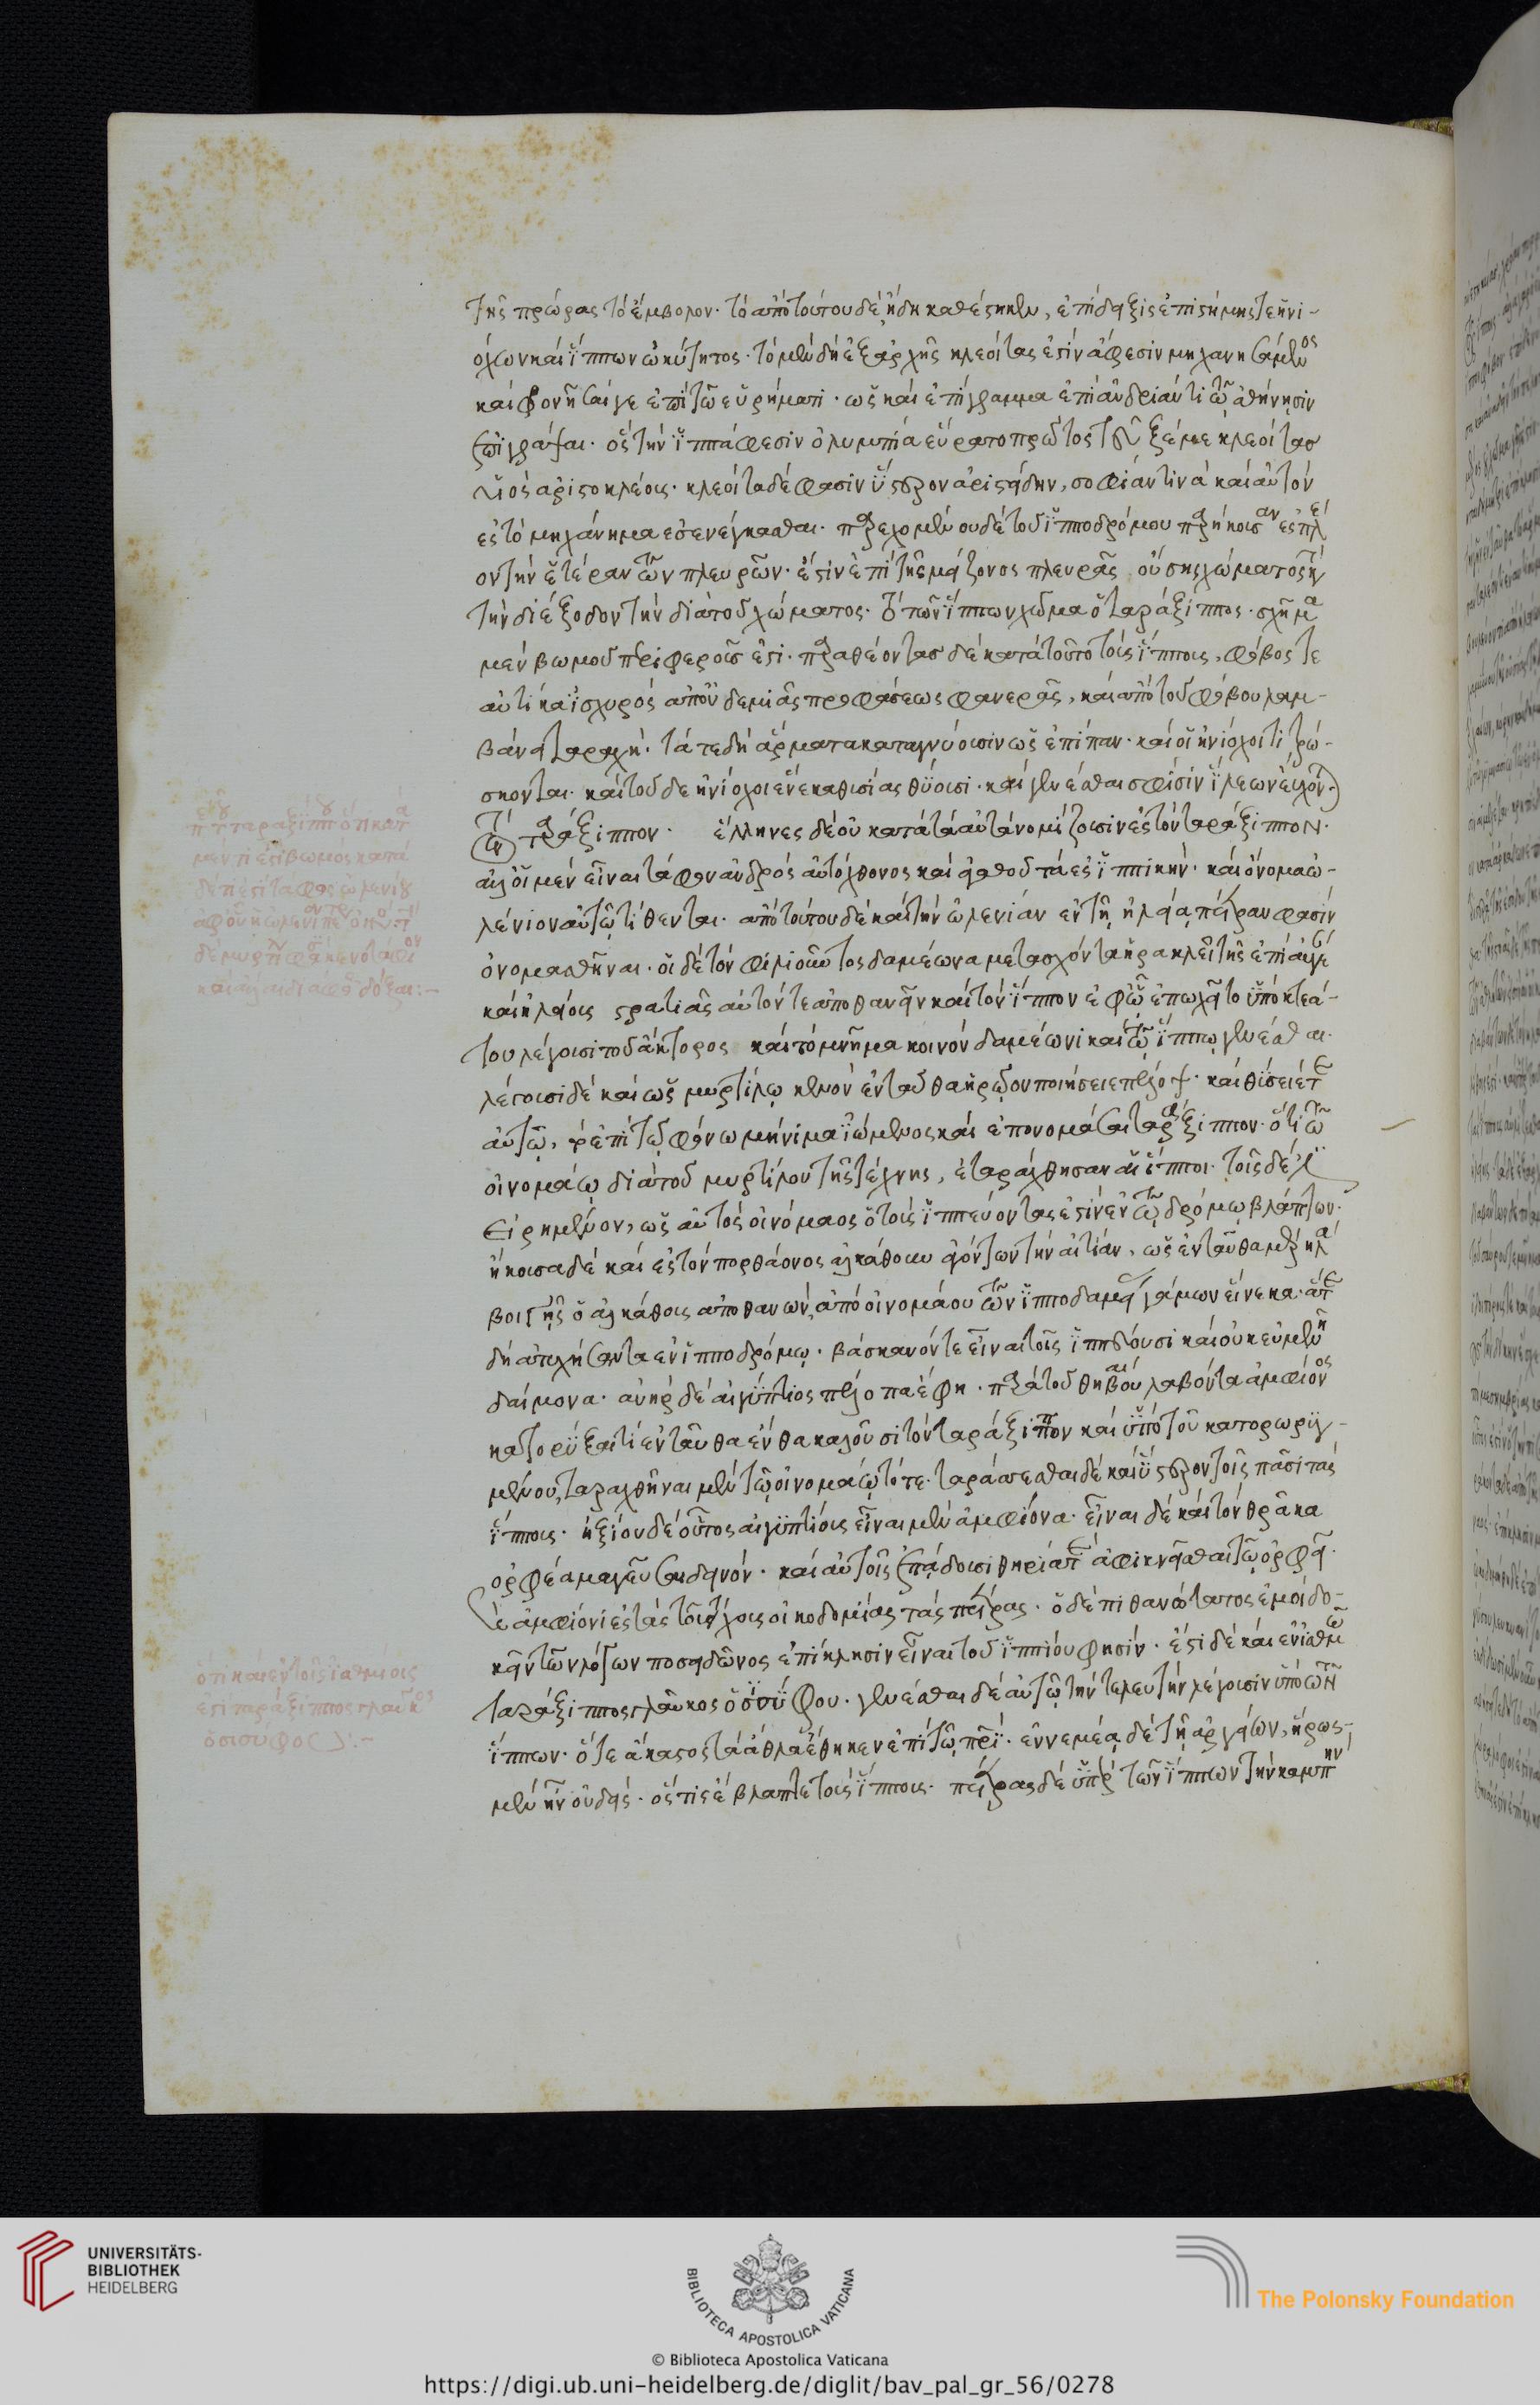 τῆς πρώρας τὸ ἔμβολον· τὸ ἀπὸ τούτου δὲ ἤδη καθέστηκεν, ἐπίδειξις ἐπιστήμης τε ἡνι-
όχων καὶ ἵππων ὠκύτητος· τὸ μὲν δὴ ἐξαρχῆς κλεοίτας ἐστὶν ἄφεσιν μηχανησάμενος
καὶ φρονῆσαί γε ἐπὶ τῷ εὑρήματι· ὡς καὶ ἐπίγραμμα ἐπὶ ἀνδριάντι τῷ ἀθήνησιν
ἐπιγράψαι· ὃς τὴν ἱππάφεσιν ὀλυμπία εὕρατο πρῶτος τεῦξέ με κλεοίτας
υἱὸς ἀριστοκλέους· κλεοίτα δέ φασιν ὕστερον ἀριστείδην, σοφίαν τινὰ καὶ αὐτὸν
ἐς τὸ μηχάνημα ἐσενέγκασθαι· παρεχομεν ου δὲ τοῦ ἱπποδρόμου παρήκουσαν ἐς πλέ
ον τὴν ἑτέραν τῶν πλευρῶν· ἔστιν ἐπὶ τῆς μείζονος πλευρᾶς οὔσης χώματος κατὰ
τὴν διέξοδον τὴν διὰ τοῦ χώματος· τὸ τῶν ἵππων χῶμα ὁ ταράξιππος· σχῆμα
μὲν βωμοῦ περιφεροῦς ἐστι· παραθέοντας δὲ κατὰ τοῦτο τοὺς ἵππους, φόβος τε
αὐτίκα ἰσχυρὸς ἀπ' οὐδεμιᾶς προφάσεως φανερᾶς, καὶ ἀπὸ τοῦ φόβου λαμ-
βάνει ταραχή· τά τε δὴ ἅρματα καταγνύουσιν ὡς ἐπίπαν· καὶ οἱ ἡνίοχοι τιτρώ-
σκονται· καὶ τοῦδε ἡνίοχοι ἕνεκα θυσίας θύουσι· καὶ γενέσθαι σφίσιν ἵλεων εὔχονται
τὸν ταράξιππον· ἕλληνες δὲ οὐ κατὰ τὰ αὐτὰ νομίζουσιν ἐς τὸν ταράξιππον·
ἀλλ' οἱ μὲν εἶναι τάφον ἀνδρὸς αὐτόχθονος καὶ ἀγαθοῦ τὰ ἐς ἱππικήν· καὶ ὄνομα ὠ-
λένιον αὐτῷ τίθενται· ἀπὸ τούτου δὲ καὶ τὴν ὠλενίαν ἐν τῇ ἠλείᾳ πέτραν φασὶν
ὀνομασθῆναι· οἱ δὲ τὸν φλιοῦντος δαμέωνα μετασχόντα ἡρακλεῖ τῆς ἐπὶ αὐγέαν
καὶ ἠλείους στρατιᾶς αὐτόν τε ἀποθανεῖν καὶ τὸν ἵππον ἐφ' ᾧ ἐπωχεῖτο ὑπὸ κτεά-
του λέγουσι τοῦ ἄκτορος καὶ τὸ μνῆμα κοινὸν δαμέωνι καὶ τῷ ἵππῳ γενέσθαι·
λέγουσι δὲ καὶ ὡς μυρτίλῳ κενὸν ἐνταῦθα ἡρῷον ποιήσειε πέλοψ· καὶ θύσειέ τε
αὐτῷ, ἐπὶ τῷ φόνῳ μήνιμα ἰώμενος καὶ ἐπονομάσαι ταράξιππον· ὅτι τῷ
οἰνομάῳ διὰ τοῦ μυρτίλου τῆς τέχνης, ἐταράχθησαν αἱ ἵπποι· τοῖς δέ
εἰρημένον, ὡς αὐτὸς οἰνόμαος ὁ τοὺς ἱππεύοντας ἐστὶν ἐν τῷ δρόμῳ βλάπτων·
ἤκουσα δὲ καὶ ἐς τὸν πορθάονος ἀλκάθουν ἀγόντων τὴν αἰτίαν, ὡς ἐνταῦθα μέρος
βοι γῆς ὁ ἀλκάθους ἀποθανὼν ἀπὸ οἰνομάου τῶν ἱπποδαμείας γάμων εἵνεκα· ἅτε
δὴ ἀτυχήσαντα ἐν ἱπποδρόμῳ· βάσκανόν τε εἶναι τοῖς ἱππεύουσι καὶ οὐκ εὐμενῆ
δαίμονα· ἀνὴρ δὲ αἰγύπτιος πέλοπα ἔφη· παρὰ τοῦ θηβαίου λαβόντα ἀμφίονος
κατορύξαι τι ἐνταῦθα ἔνθα καλοῦσι τὸν ταράξιππον καὶ ὑπὸ τοῦ κατορωρυγ-
μένου, ταραχθῆναι μὲν τῷ οἰνομάῳ τότε· ταράσσεσθαι δὲ καὶ ὕστερον τοῖς πᾶσι τὰς
ἵππους· ἠξίου δὲ οὗτος αἰγύπτιους εἶναι μὲν ἀμφίονα· εἶναι δὲ καὶ τὸν θρᾶκα
ὀρφέα μαγεῦσαι δεινόν· καὶ αὐτοῖς ἐπᾴδουσι θηρία τε ἀφικνεῖσθαι τῷ ὀρφεῖ·
καὶ ἀμφίονι ἐς τὰς τοῦ τείχους οἰκοδομίας τὰς πέτρας· ὁ δὲ πιθανώτατος ἐμοὶ δο-
κεῖν τῶν λόγων ποσειδῶνος ἐπίκλησιν εἶναι τοῦ ἱππίου φησίν· ἔστι δὲ καὶ ἐν ἰσθμῷ
ταράξιππος γλαῦκος ὁ σισύφου· γενέσθαι δὲ αὐτῷ τὴν τελευτὴν λέγουσιν ὑπὸ τῶν
ἵππων· ὅτε ἄκαστος τὰ ἆθλα ἔθηκεν ἐπὶ τῷ πατρί· ἐν νεμέᾳ δὲ τῇ ἀργείων, ἥρως
μὲν ἦν οὐδείς· ὅστις ἔβλαπτε τοὺς ἵππους· πέτρας δὲ ὑπὲρ τῶν ἵππων τὴν καμπὴν
ὅτι καὶ ἐν τοῖς ἰσθμίοις
ἐστὶ ταράξιππος γλαῦκος
ὁ σισύφου :~
UNIVERSITÄTS-
BIBLIOTHEK
HEIDELBERG
BIBLIOTECA APOSTOLICA VATICANA
The Polonsky Foundation
© Biblioteca Apostolica Vaticana
https://digi.ub.uni-heidelberg.de/diglit/bav_pal_gr_56/0278